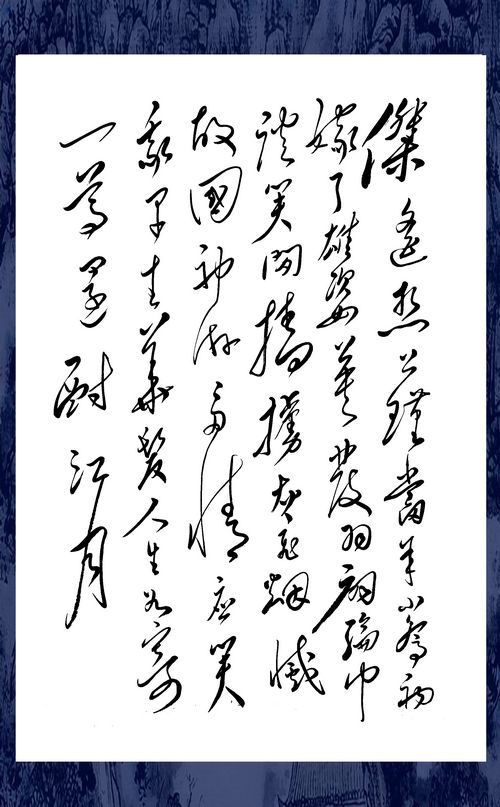 傑遙想公瑾當年小喬初
嫁了雄姿英發羽扇綸巾
談笑間檣櫓灰飛煙滅
故國神游多情應笑
我早生華髮人生如寄
一尊還酹江月